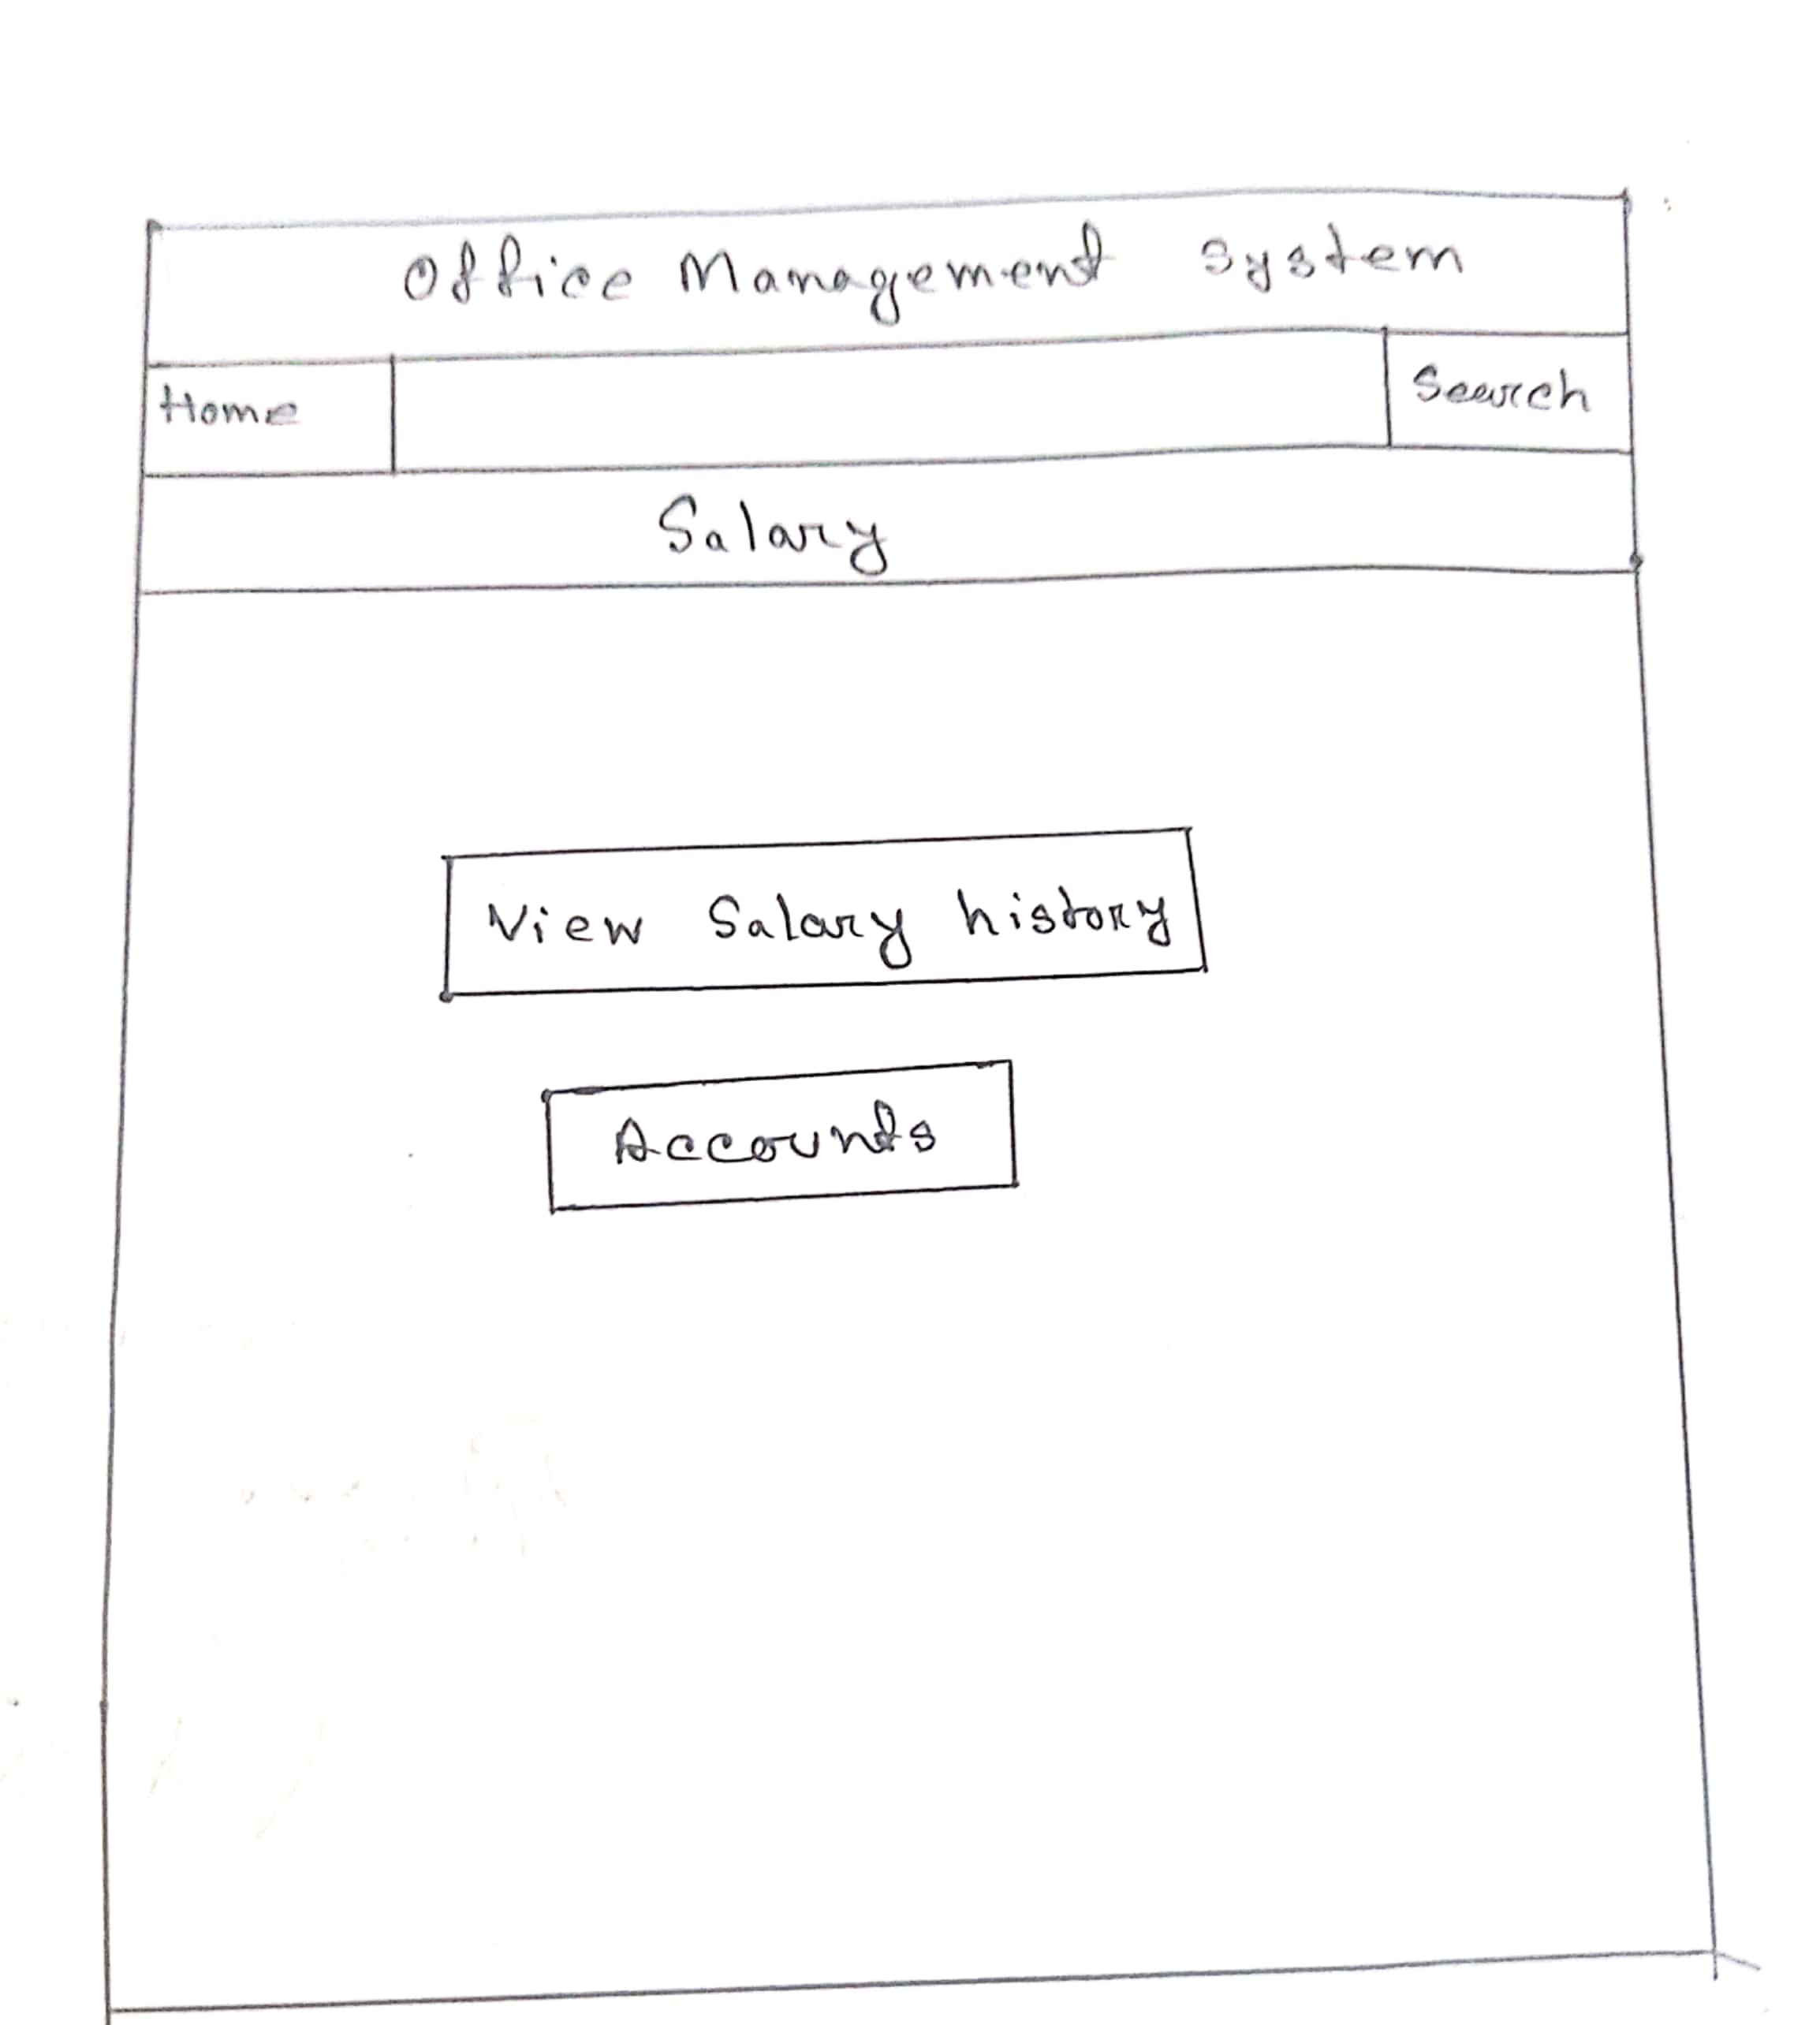 Office Management System
Home
Search
Salary
View Salary history
Accounts